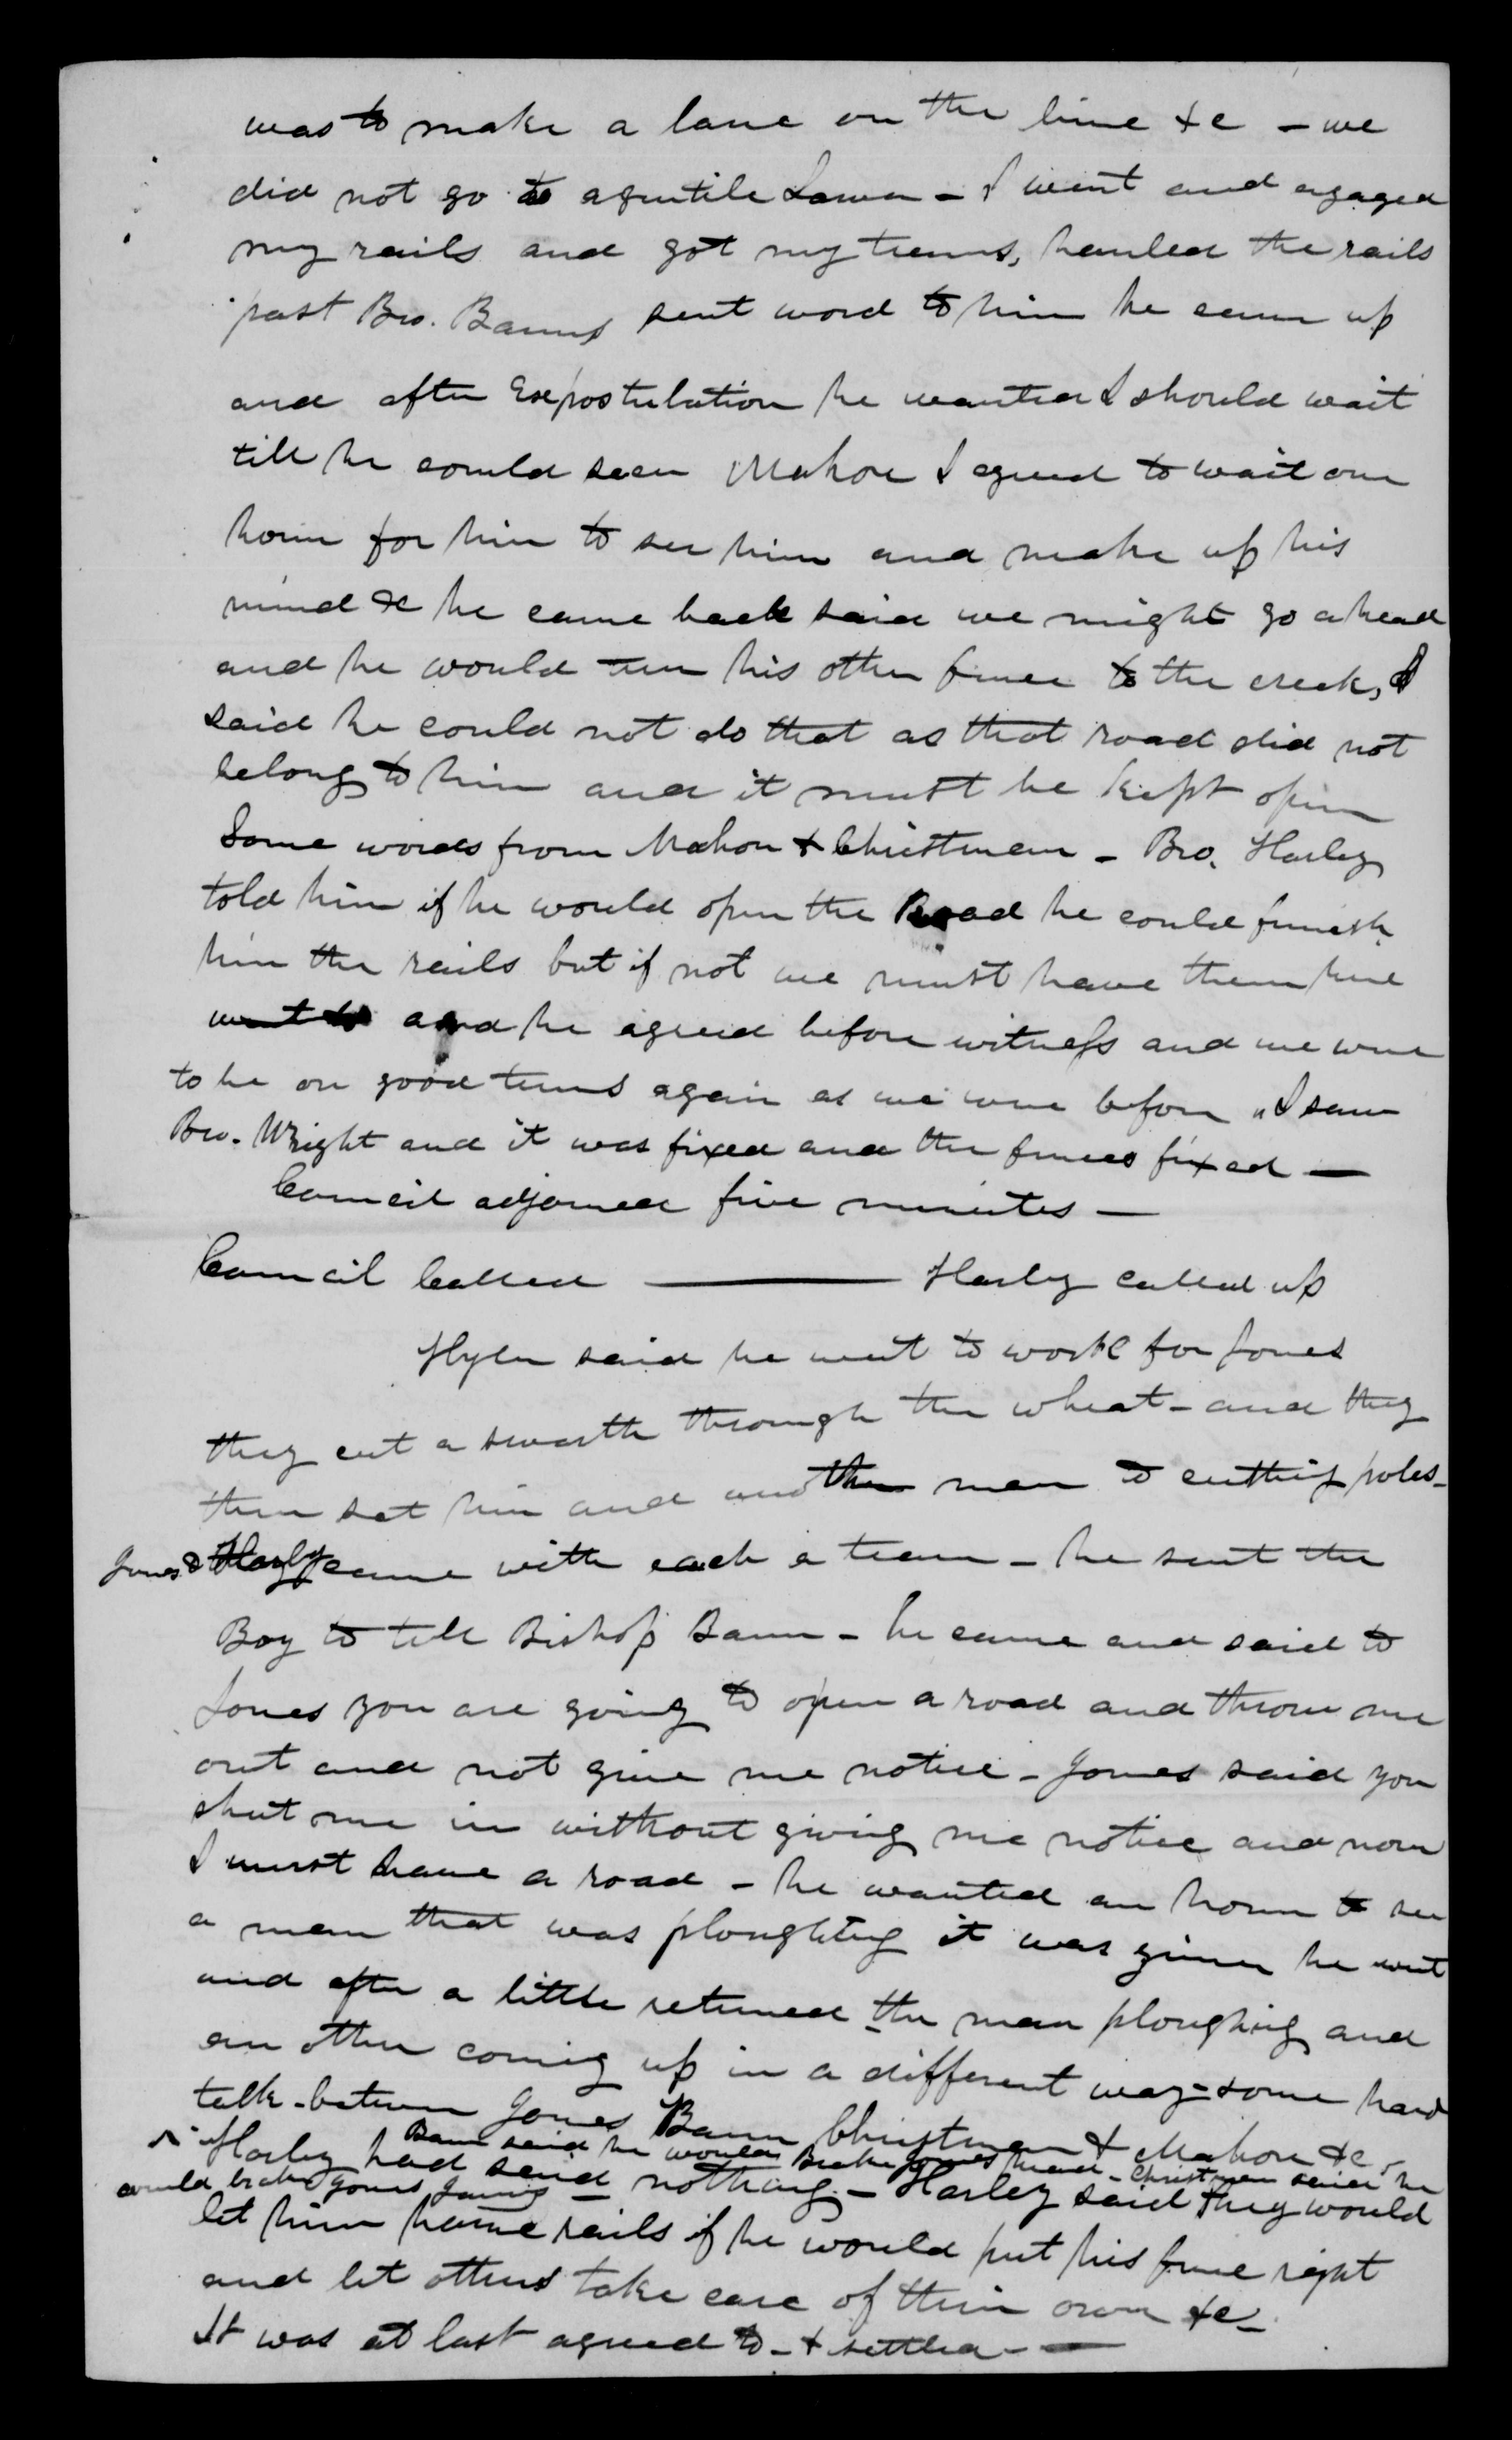 was to make a lane on the line &c - we
did not go to a gentile Lawer - I went and egaged
my rails and got my teams, hauled the rails
past Bro. Banns sent word to him he came up
and after Expostulation he wanted I should wait
till he could seen Mahon I agreed to wait one
hour for him to see him and make up his
mind &c he came back said we might go ahead
and he would run his other fence to the creek, I
said he could not do that as that road did not
belong to him and it must be kept open
Some words from Mahon & Christman - Bro. Harley
told him if he would open the Road he could furnish
him the rails but if not we must have them here
went to and he agreed before witness and we were
to be on good terms again as we were before I saw
Bro. Wright and it was fixed and the fences fixed —
Council adjorned five minutes —
Council Called — Harley called up
Hyler said he went to work for Jones
they cut a swarth through the wheat - and they
then set him and another man to cutting poles -
Jones & Harley came with each a team - he sent the
Boy to tell Bishop Bann - he came and said to
Jones you are going to open a road and throw me
out and not give me notice - Jones said you
shut me in without giving me notice and now
I must have a road - he wanted an hour to see
a man that was ploughing it was given he went
and after a little returned the man ploughing and
an other coming up in a different way - some hard
talk - between Jones Bann Christman & Mahon &c -
Bann said he would Brake Jones head - Christman said he
would brake Jones Jaws -
Harley had said nothing - Harley said they would
let him have rails if he would put his fence right
and let others take care of their own &c -
It was at last agreed to - & settled - —